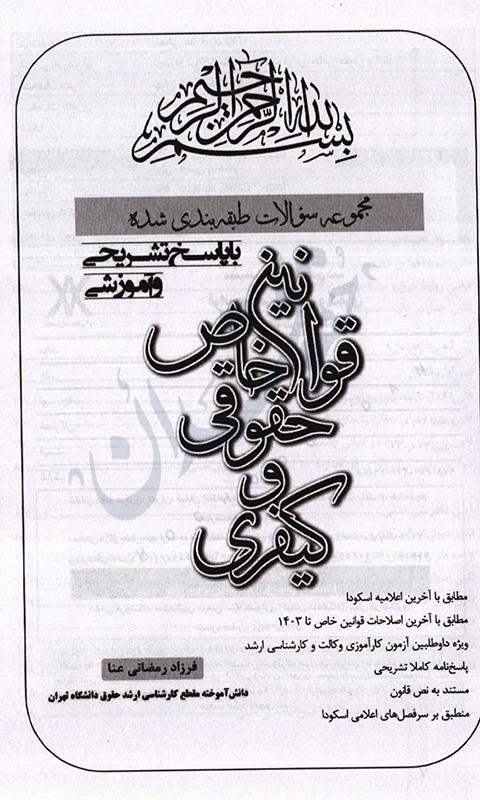 بسم الله الرحمن الرحیم
مجموعه سؤالات طبقه‌بندی شده
با پاسخ تشریحی
و آموزشی
قوانین خاص
حقوقی
و
کیفری
مطابق با آخرین اعلامیه اسکودا
مطابق با آخرین اصلاحات قوانین خاص تا ۱۴۰۳
ویژه داوطلبین آزمون کارآموزی وکالت و کارشناسی ارشد
پاسخ‌نامه کاملا تشریحی
مستند به نص قانون
منطبق بر سرفصل‌های اعلامی اسکودا
فرزاد رمضانی عنا
دانش‌آموخته مقطع کارشناسی ارشد حقوق دانشگاه تهران